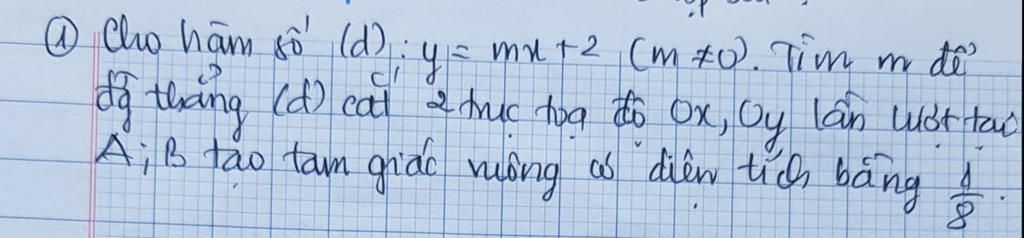 ① Cho hàm số (d): y = mx + 2 (m ≠ 0). Tìm m để
đg thẳng (d) cắt 2 trục toạ độ Ox, Oy lần lượt tại
A; B tạo tam giác vuông có diện tích bằng 1/8.